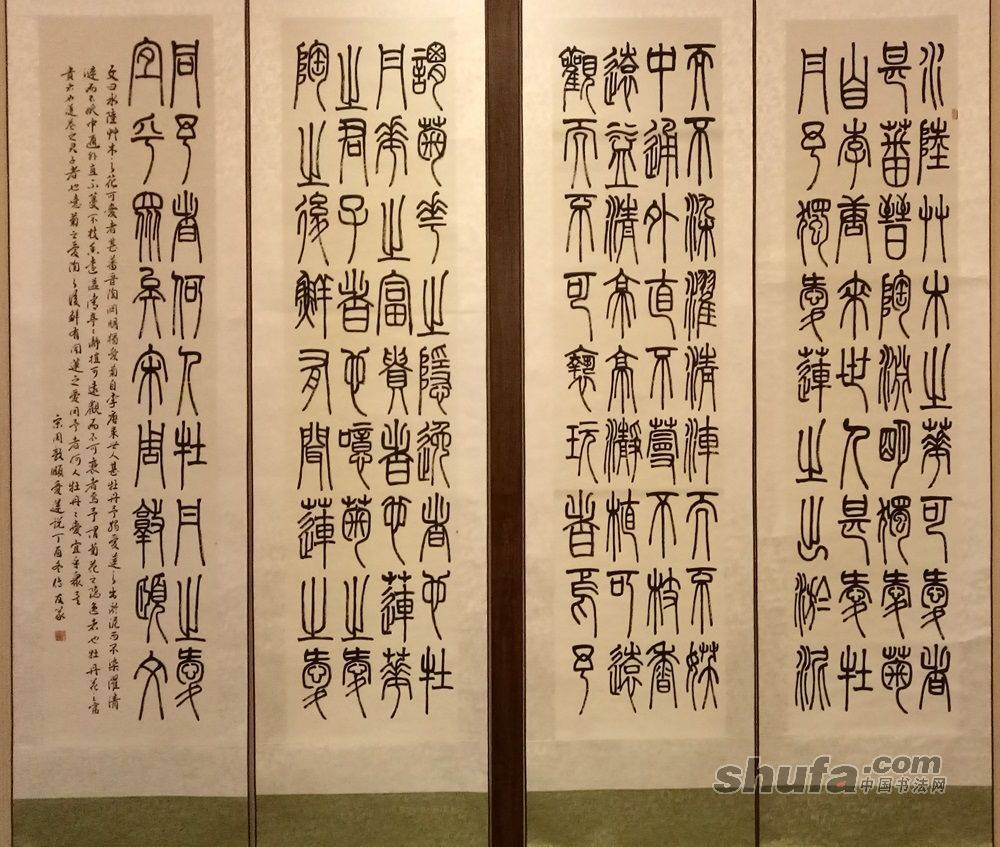 水陸艸木之華可愛者
甚蕃晉陶淵明獨愛菊
自李唐來世人甚愛牡
丹予獨愛蓮之出淤泥
而不染濯清漣而不妖
中通外直不蔓不枝香
遠益清亭亭瀞植可遠
觀而不可褻玩者焉予
謂菊華之隱逸者也牡
丹華之富貴者也蓮華
之君子者也噫菊之愛
陶之後鮮有聞蓮之愛
同予者何人牡丹之愛
宜乎眾矣宋周敦頤文
文曰水陸艸木之花可愛者甚蕃晉陶淵明獨愛菊自李唐來世人甚牡丹予獨愛蓮之出淤泥而不染濯清
漣而不妖中通外直不蔓不枝香遠益清亭亭靜植可遠觀而不可褻者焉予謂菊花之隱逸者也牡丹花之富
貴者也蓮花之君子者也噫菊之愛陶之後鮮有聞蓮之愛同予者何人牡丹之愛宜乎眾矣
宋周敦頤愛蓮說丁酉冬友篆
shufa.com
中国书法网